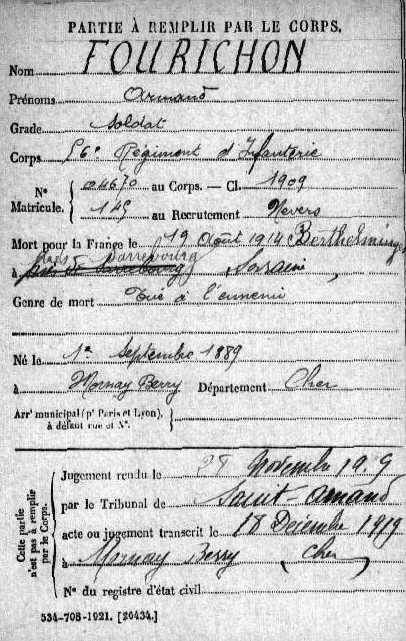 PARTIE À REMPLIR PAR LE CORPS.
FOURICHON
Nom
Prénoms Armand
Grade Soldat
Corps 56e Régiment d'Infanterie
N° 04670 au Corps. — Cl. 1909
Matricule. 145 au Recrutement Nevers
Mort pour la France le 19 Août 1914 Berthelming
à près Sarrebourg
Genre de mort Tué à l'ennemi
Né le 1er Septembre 1889
à Mornay Berry Département Cher
Arrt municipal (pr Paris et Lyon),
à défaut rue et N°.
Cette partie n'est pas à remplir par le Corps.
Jugement rendu le Novembre 1919
par le Tribunal de Saint-Amand
acte ou jugement transcrit le 18 Décembre 1919
à Mornay Berry (Cher)
N° du registre d'état civil
534-708-1921. [26434.]